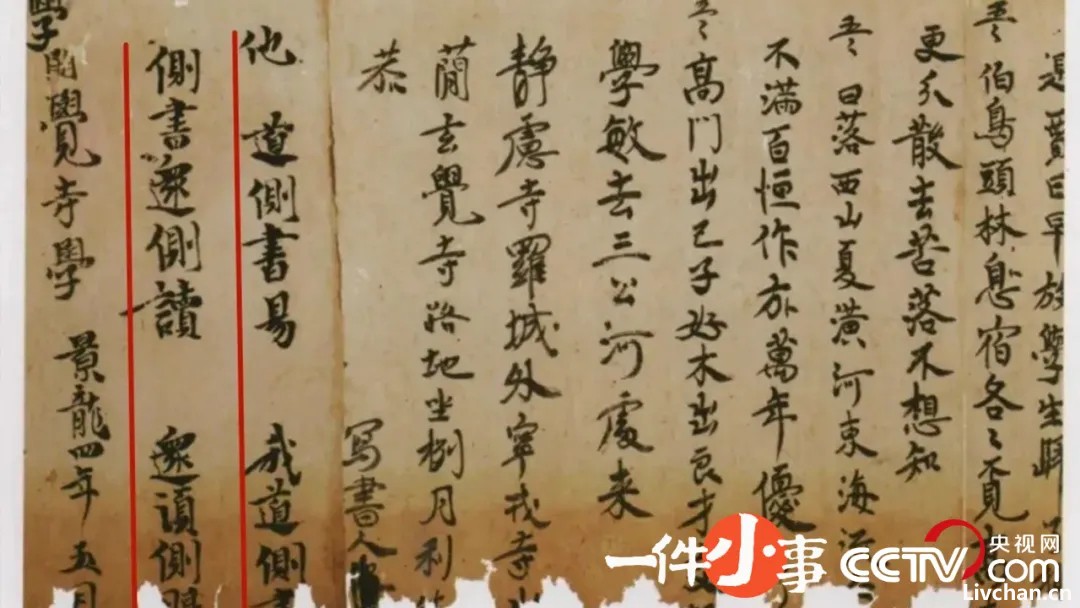 是賈日早放學生歸
五言 伯鳥頭林息宿各々覓
更分散去苦落不想知
五言 日落西山夏潢河東海流
不滿百恒作万萬年優
五言 高門出己子好木出良才
學敏去三公河處来
静慮寺羅城外寧戎寺
蕳玄覺寺路地坐𣑯月利
恭 寫書人
他道側書易 我道側書
側書還側讀 還須側眼
學開覺寺學 景龍四年五月
一件小事
CCTV.com
央视网
Livchan.cn